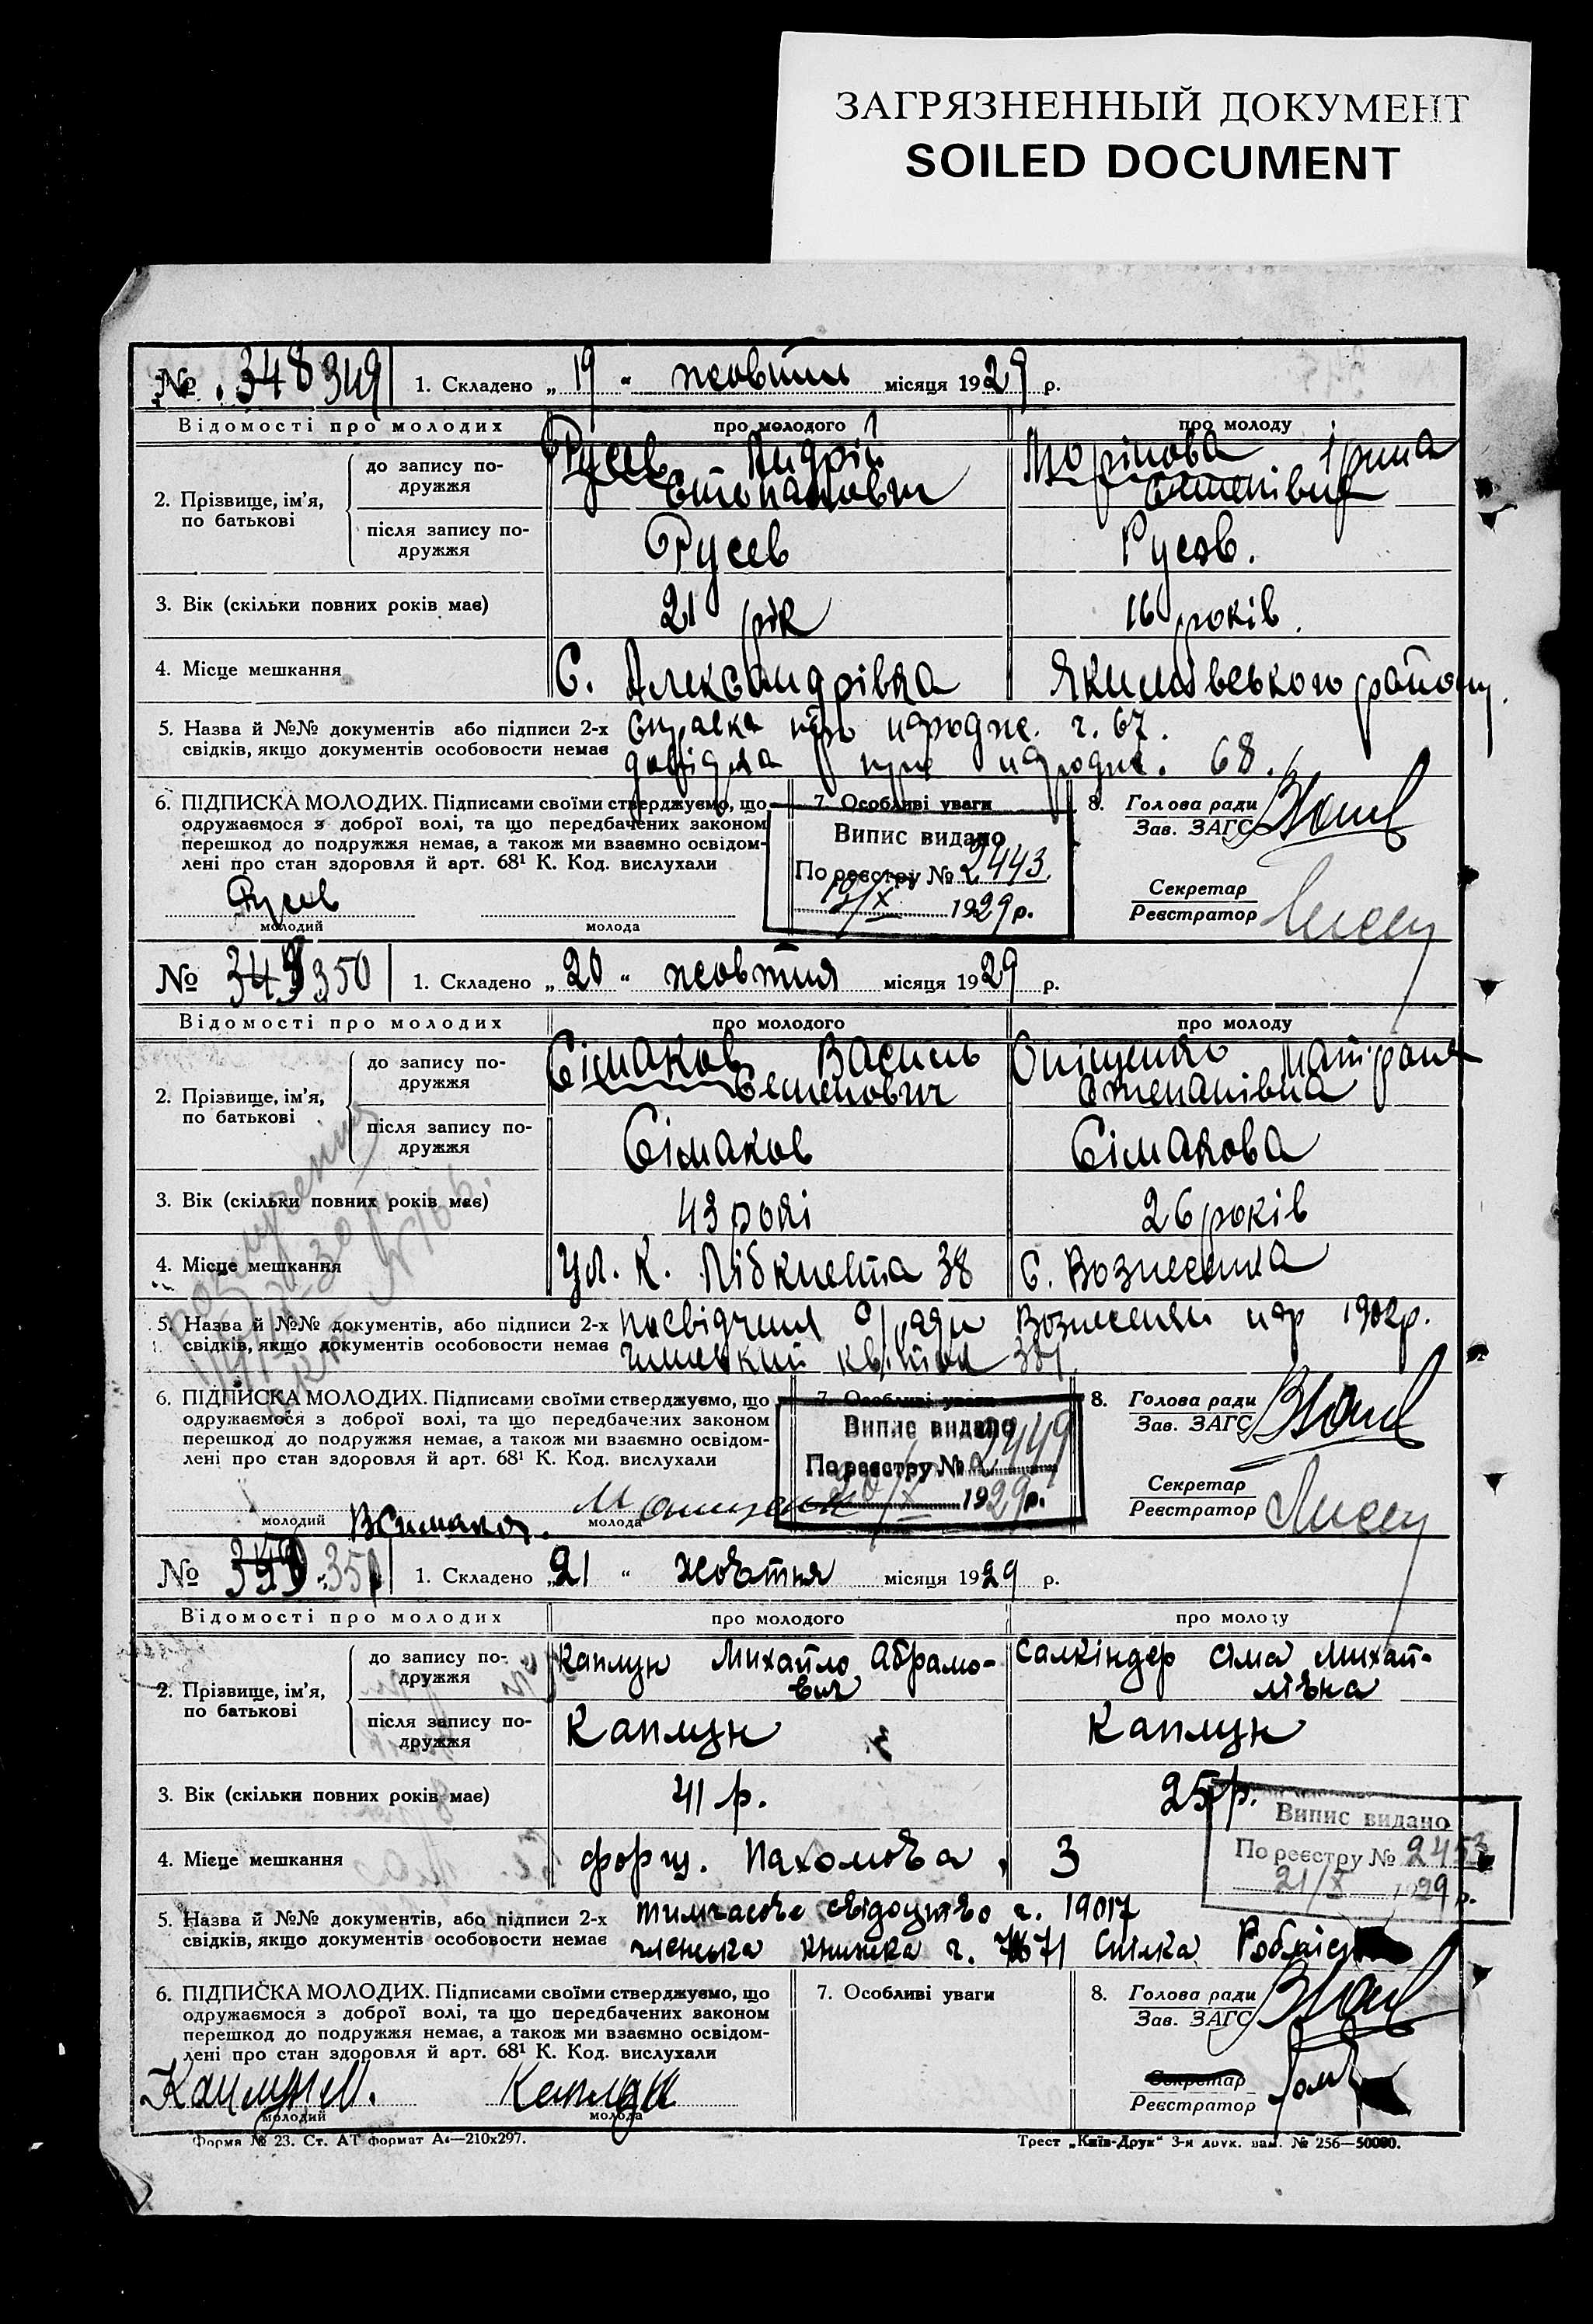 ЗАГРЯЗНЕННЫЙ ДОКУМЕНТ
SOILED DOCUMENT
№ 348 349 1. Складено „ 19 “ жовтня місяця 1929 р.
Відомості про молодих про молодого про молоду
2. Прізвище, ім’я, по батькові
до запису подружжя
Русев Андрій
Степанович
Ірина
після запису подружжя
Русев
Русев.
3. Вік (скільки повних років має) 21 рік 16 років.
4. Місце мешкання С. Александрівка Якимівського району.
5. Назва й №№ документів або підписи 2-х свідків, якщо документів особовости немає
Справка про народже. ч. 67.
довідка про народже. 68.
6. ПІДПИСКА МОЛОДИХ. Підписами своїми стверджуємо, що
одружаємося з доброї волі, та що передбачених законом
перешкод до подружжя немає, а також ми взаємно освідом-
лені про стан здоровля й арт. 68¹ К. Код. вислухали
Русев
молодий молода
7. Особливі уваги
Випис видано
По реєстру № 2443
19/X 1929 р.
8. Голова ради
Зав. ЗАГС
Секретар
Реєстратор
№ 349 350 1. Складено „ 20 “ жовтня місяця 1929 р.
Відомості про молодих про молодого про молоду
2. Прізвище, ім’я, по батькові
до запису подружжя
Сімаков Василь
Семенович
Степанівна
після запису подружжя
Сімаков
Сімакова
3. Вік (скільки повних років має) 43 рокі 26 років
4. Місце мешкання ул. К. Лібкнехта 38 С. Вознесенка
5. Назва й №№ документів, або підписи 2-х свідків, якщо документів особовости немає
посвідчення с/ради Вознесенки нар 1902р.
членський квиток
6. ПІДПИСКА МОЛОДИХ. Підписами своїми стверджуємо, що
одружаємося з доброї волі, та що передбачених законом
перешкод до подружжя немає, а також ми взаємно освідом-
лені про стан здоровля й арт. 68¹ К. Код. вислухали
молодий ВСимаков. молода
7. Особливі уваги
Випис видано
По реєстру № 2449
20/X 1929 р.
8. Голова ради
Зав. ЗАГС
Секретар
Реєстратор
№ 351 1. Складено „ 21 “ жовтня місяця 1929 р.
Відомості про молодих про молодого про молоду
2. Прізвище, ім’я, по батькові
до запису подружжя
Каплун Михайло Абрамо-
вич
Салкіндер Сіма Михай-
лівна
після запису подружжя
Каплун
Каплун
3. Вік (скільки повних років має) 41 р. 25 р.
4. Місце мешкання форш. Пахомова, 3
Випис видано
По реєстру № 2453
21/X 1929 р.
5. Назва й №№ документів, або підписи 2-х свідків, якщо документів особовости немає
тимчасове свідоцтво ч. 19017
членська книжка ч. Спілка
6. ПІДПИСКА МОЛОДИХ. Підписами своїми стверджуємо, що
одружаємося з доброї волі, та що передбачених законом
перешкод до подружжя немає, а також ми взаємно освідом-
лені про стан здоровля й арт. 68¹ К. Код. вислухали
Каплун М. Каплун
молодий молода
7. Особливі уваги
8. Голова ради
Зав. ЗАГС
Секретар
Реєстратор
Форма № 23. Ст. АТ формат А4—210х297.
Трест „Київ-Друк“ 3-я друк. зам. № 256—50000.